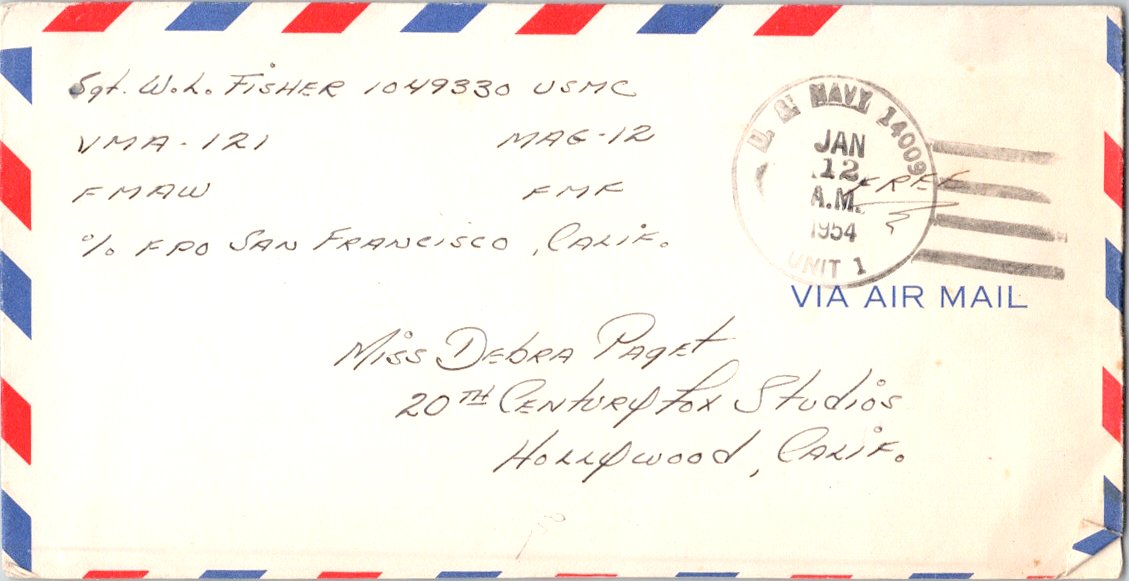 Sgt. W.L. FISHER 1049330 USMC
VMA-121 MAG-12
FMAW FMF
c/o FPO SAN FRANCISCO, CALIF.
U. S. NAVY 14009
JAN
12
A.M.
1954
UNIT 1
FREE
VIA AIR MAIL
MISS DEBRA PAGET
20TH CENTURY FOX STUDIOS
HOLLYWOOD, CALIF.